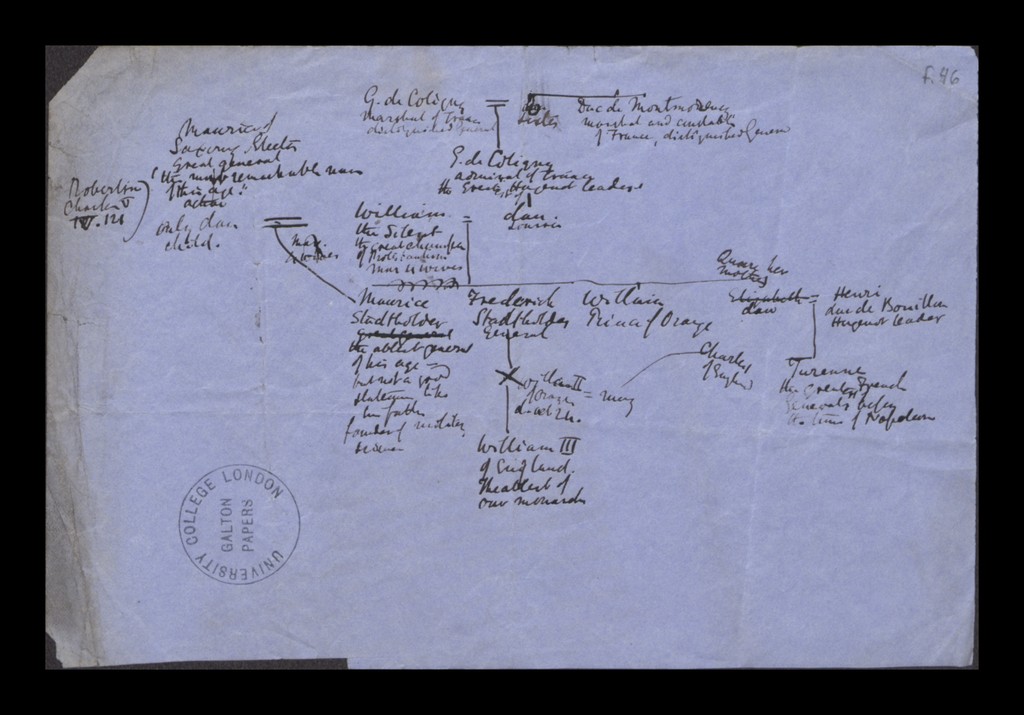 f. 46
G. de Coligny =
Marshal of France
distinguished general
sister
Duc de Montmorency
marshal and constable
of France, distinguished General
Maurice of
Saxony Elector
Great general
"the most remarkable man
of this age."
Robertson
Charles V
IV. 121
only dau =
child.
G. de Coligny
admiral of France
the Great Hugenot leader
William =
the Silent
the great champion
of Protestantism
mar 4 wives
dau.
Louisa
mar.
4 wives
Query her
mother
Maurice
Stadtholder
great general
the ablest general
of his age —
but not a good
statesman, like
his father
founder of military
science
Frederick
Stadtholder
General
William
Prince of Orange
Elizabeth =
dau
Henri
duc de Bouillon
Hugenot leader
Charles I
of England
Turenne
the greatest French
Generals before
the time of Napoleon
X William II = mary
of Orange
died 24.
William III
of England.
The ablest of
our monarchs
UNIVERSITY COLLEGE LONDON
GALTON
PAPERS